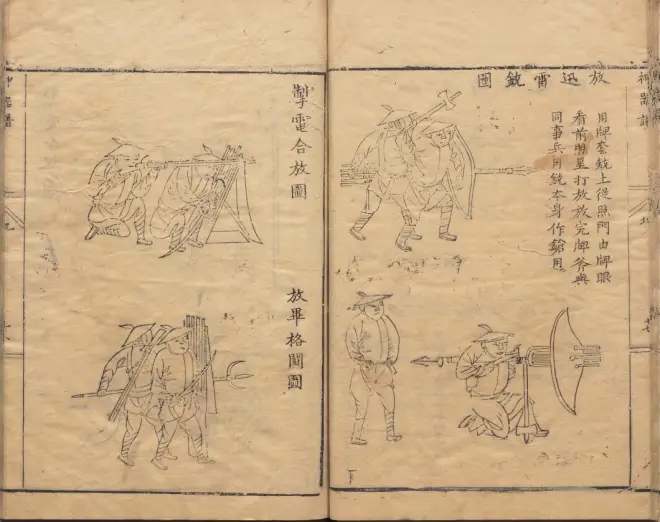 神器譜
放迅雷銃圖
用牌套銃上從照門由牌眼
看前照星打放放完牌斧與
同事兵用銃本身作鎗用
掣電合放圖
放畢格鬪圖